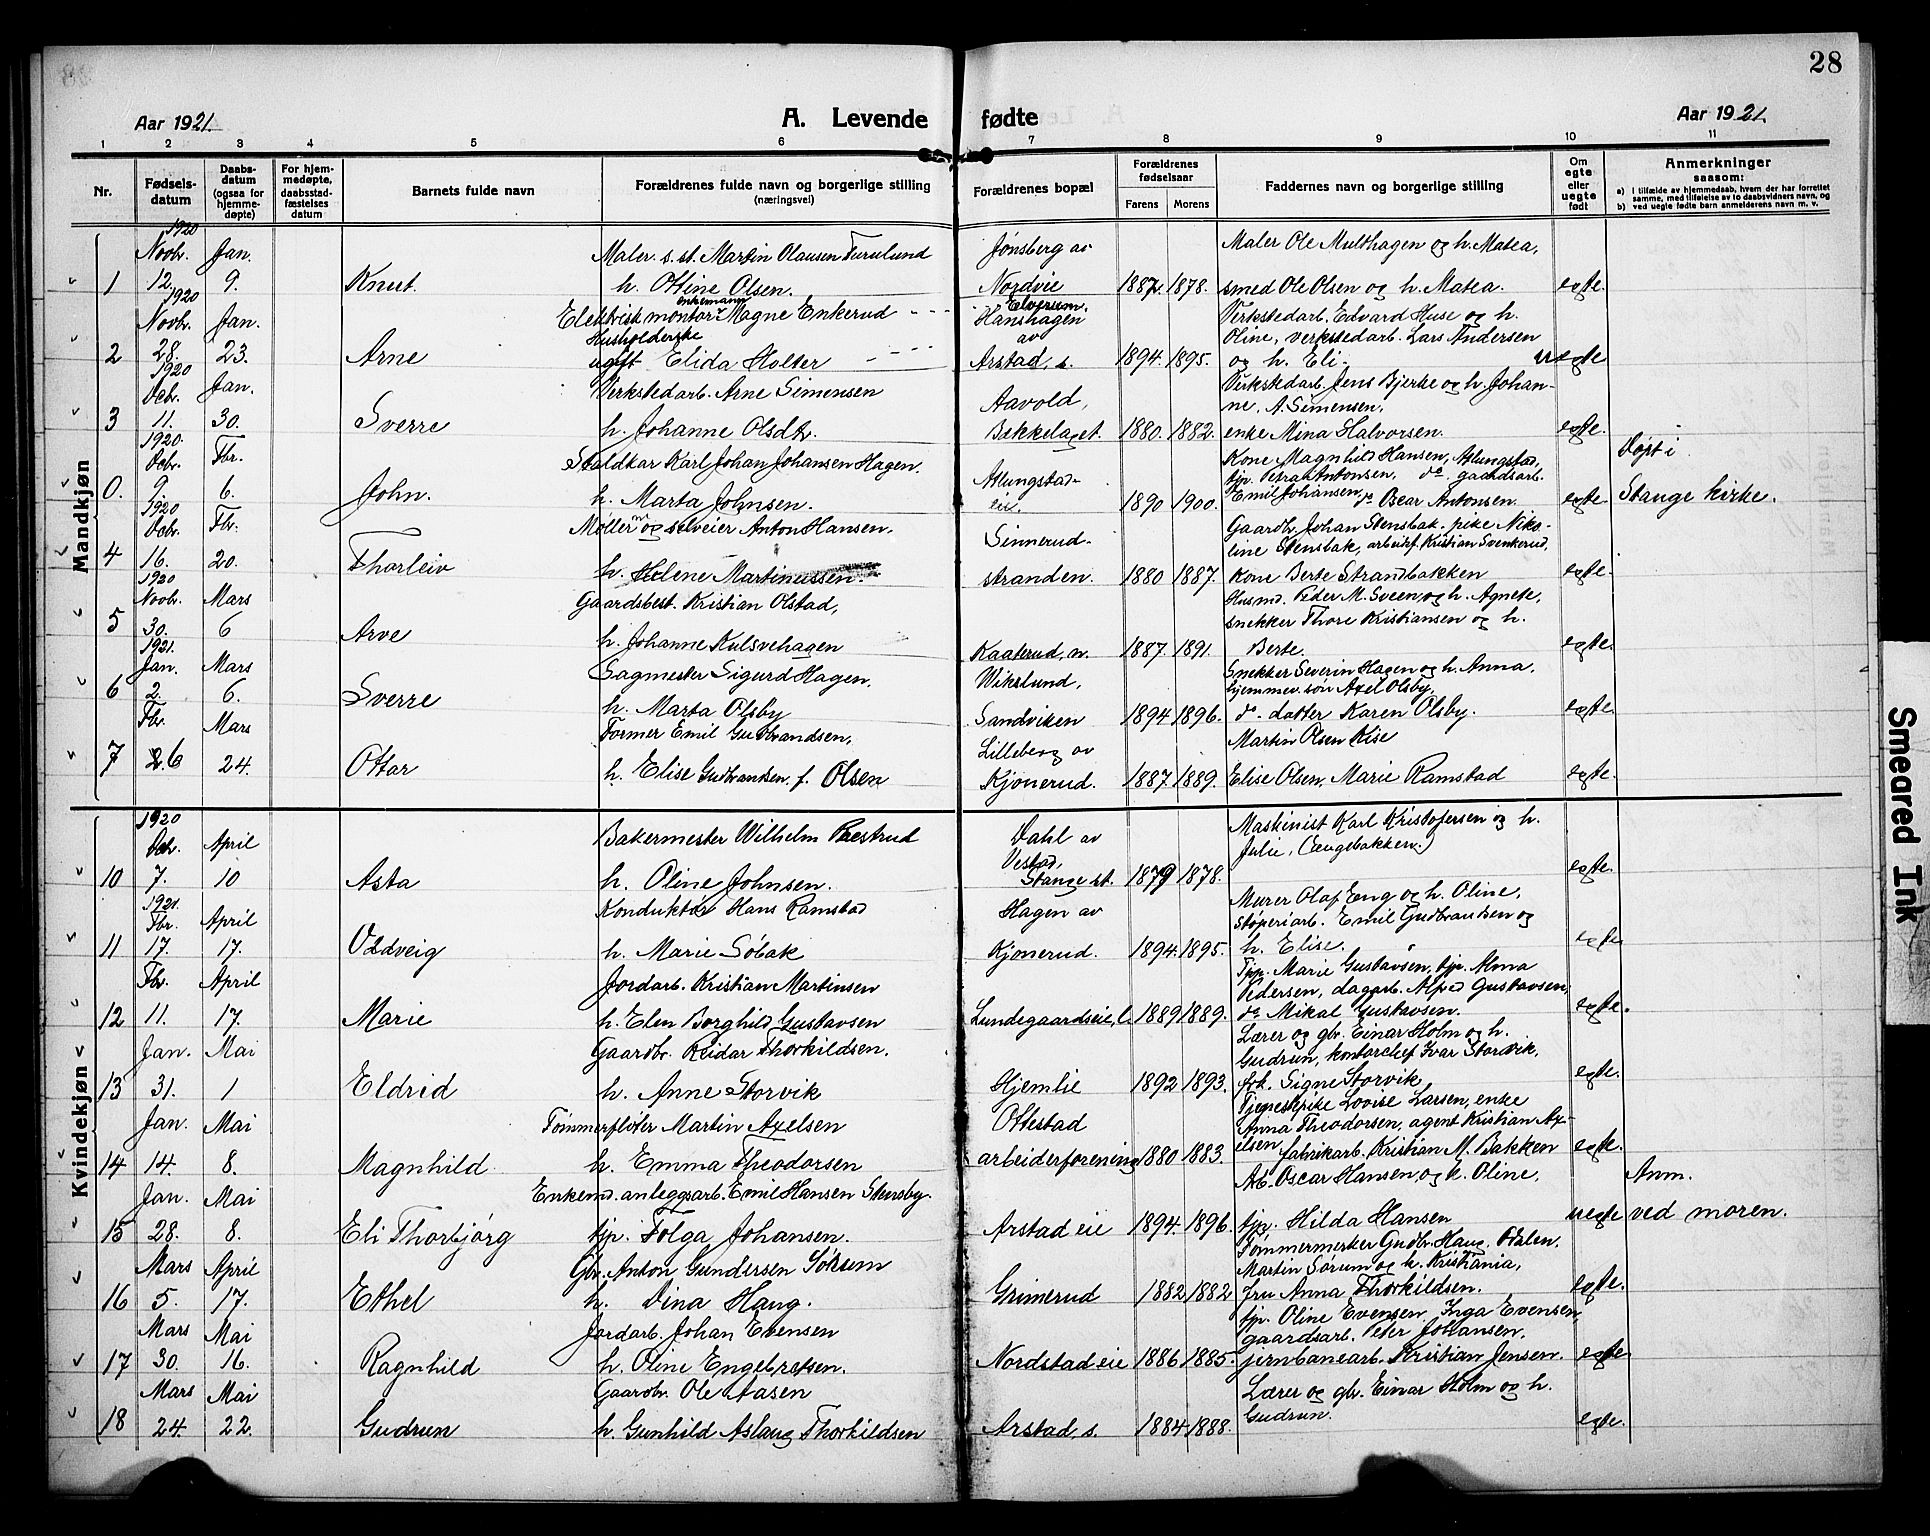 28
Aar 1921.
A. Levende fødte
Aar 1921.
1 2 3 4 5 6 7 8 9 10 11
Nr.
Fødsels-
datum
Daabs-
datum
(ogsaa for
hjemme-
døpte)
For hjem-
medøpte,
daabsstad-
fæstelses
datum
Barnets fulde navn
Forældrenes fulde navn og borgerlige stilling
(næringsvei)
Forældrenes bopæl
Forældrenes
fødselsaar
Farens Morens
Faddernes navn og borgerlige stilling
Om
egte
eller
uegte
født
Anmerkninger
saasom:
a) i tilfælde av hjemmedaab, hvem der har forrettet
samme, med tilføielse av to daabsvidners navn, og
b) ved uegte fødte barn anmelderens navn m. v.
Mandkjøn
1920
Novbr. Jan. Maler s. st. Martin Olausen Furulund Jønsberg av Maler Ole Multhagen og h. Matea,
1 12. 9. Knut. h. Otine Olsen. Nordvie 1887. 1878. smed Ole Olsen og h. Matea. egte.
1920 enkemann Elverum.
Novbr. Jan. Elektrisk montør Magne Enkerud Hanshagen Verkstedarb. Edvard Huse og h.
Husholderske av Oline, verkstedarb. Lars Andersen
2 28. 23. Arne ugift Elida Holter Arstad, s. 1894. 1895. og h. Eli. uegte
1920
Dcbr. Jan. Verkstedarb. Arne Simensen Aavold, Verkstedarb. Jens Bjerke og h. Johan-
ne, A. Simensen,
3 11. 30. Sverre h. Johanne Olsdtr. Bekkelaget. 1880. 1882. enke Mina Halvorsen. egte.
1920.
Dcbr. Fbr. Staldkar Karl Johan Johansen Hagen. Atlungstad- Kone Magnhild Hansen, Atlungstad, Døpt i
tjp. Petra Antonsen, do gaardsarb.
0. 9 6. John. h. Marta Johnsen. eie. 1890 1900. Emil Johansen, do Oscar Antonsen. egte. Stange kirke.
1920
Dcbr. Fbr. Møller og selveier Anton Hansen. Sinnerud- Gaardbr. Johan Stensbak, pike Niko-
line Stensbak, arbeidsf. Kristian Svenkerud,
4 16. 20. Thorleiv h. Helene Martinussen. stranden. 1880 1887. Kone Berte Strandbakken egte.
1920
Novbr. Mars Gaardsbest. Kristian Olstad, Husmd. Peder M. Sveen, og h. Agnete,
snekker Thore Kristiansen og h.
5 30. 6 Arve h. Johanne Kulsvehagen Kaaterud, n. 1887. 1891. Berte. egte.
1921.
Jan. Mars Sagmester Sigurd Hagen. Wikslund, Snekker Severin Hagen og h. Anna,
hjemmev. søn Axel Olsby,
6 2. 6. Sverre h. Marta Olsby Sandviken 1894 1896. do. datter Karen Olsby. egte.
Fbr. Mars Former Emil Gudbrandsen, Lilleberg av Martin Olsen Kise
7 26 24. Ottar h. Elise Gudbrandsen, f. Olsen Kjonerud. 1887. 1889. Elise Olsen, Marie Ramstad egte.
Kvindekjøn
1920
Dcbr. April Bakermester Wilhelm Præstrud Dahl av Maskinist Karl Kristofersen og h.
Vestad, Julie, (Engebakken.)
10 7. 10 Asta h. Oline Johnsen. Stange st. 1879 1878. egte.
1921.
Fbr. April Konduktør Hans Ramstad Hagen av Murer Olaf Eng og h. Oline,
Støperiarb. Emil Gudbrandsen og
11 17. 17. Oddveig h. Marie Søbak Kjonerud. 1894. 1895. h. Elise. egte
Fbr. April Jordarb. Kristian Martinsen Tjp. Marie Gustavsen, tjp. Alma
Pedersen, dagarb. Alfred Gustavsen,
12 11. 17. Marie h. Elen Borghild Gustavsen Lundegaardseie, l. 1889 1889. do Mikal Gustavsen. egte.
Jan. Mai Gaardbr. Reidar Thorkildsen. Lærer og gbr. Einar Holm og h.
Gudrun, kontorchef Ivar Storvik,
13 31. 1 Eldrid h. Anne Storvik Hjemlie 1892 1893. frk. Signe Storvik egte.
Jan. Mai Tømmerfløter Martin Axelsen Ottestad Tjenestpike Lovise Larsen, enke
Anna Theodorsen, agent Kristian Ax-
14 14. 8. Magnhild. h. Emma Theodorsen arbeiderforening 1880 1883. elsen, fabrikarb. Kristian M. Bakken egte.
Jan. Mai Enkemd. anleggsarb. Emil Hansen Stensby. Ab. Oscar Hansen, og h. Oline, Anm.
15 28. 8. Eli Thorbjørg tjp. Folga Johansen. Arstad eie 1894. 1896. tjp. Hilda Hansen uegte ved moren.
Mars April Gbr. Anton Gundersen Søhsem Tømmermerker Gudbr. Haug, Odalen.
Martin Sørum og h. Kristiania,
16 5. 17. Ethel h. Dina Haug. Grimerud 1882 1882 fru Anna Thorkildsen. egte.
Mars Mai Jordarb. Johan Evensen tjp. Oline Evensen, Inga Evensen,
gaardsarb. Peter Johansen,
17 30. 16. Ragnhild h. Oline Engebretsen. Nordstad eie 1886 1885. jernbanearb. Kristian Jensen. egte
Mars Mai Gaardbr. Ole Aasen Lærer og gbr. Einar Holm og h.
18 24. 22. Gudrun h. Gunhild Aslaug Thorkildsen Arstad, s. 1884 1888. Gudrun. egte.
Smeared Ink